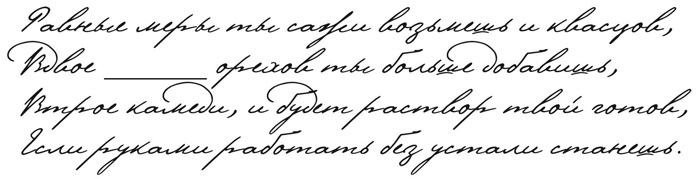 Равные меры ты сажи возьмешь и квасцов,
Вдвое ________ орехов ты больше добавишь,
Втрое камеди, и будет раствор твой готов,
Если руками работать без устали станешь.